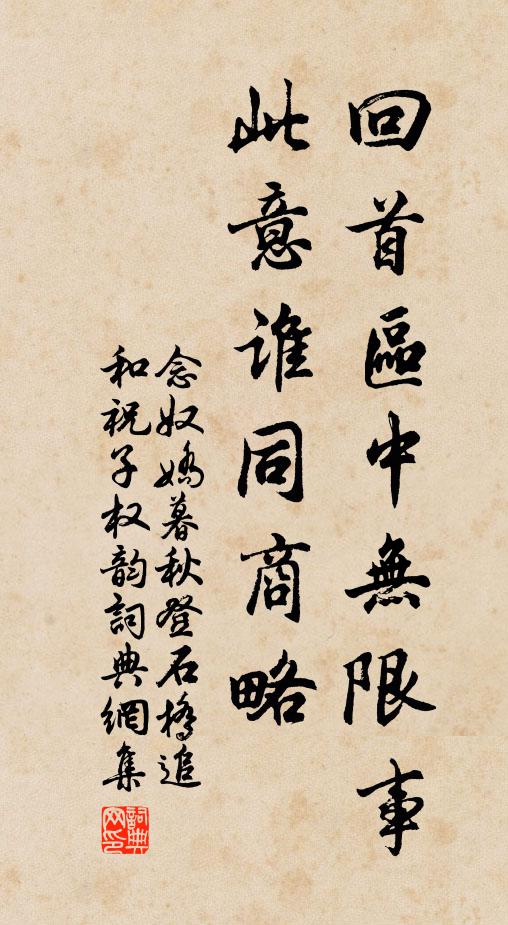 回首區中無限事
此意誰同商略
念奴嬌暮秋登石橋追
和祝子权韵詞典網集
詞典
网印